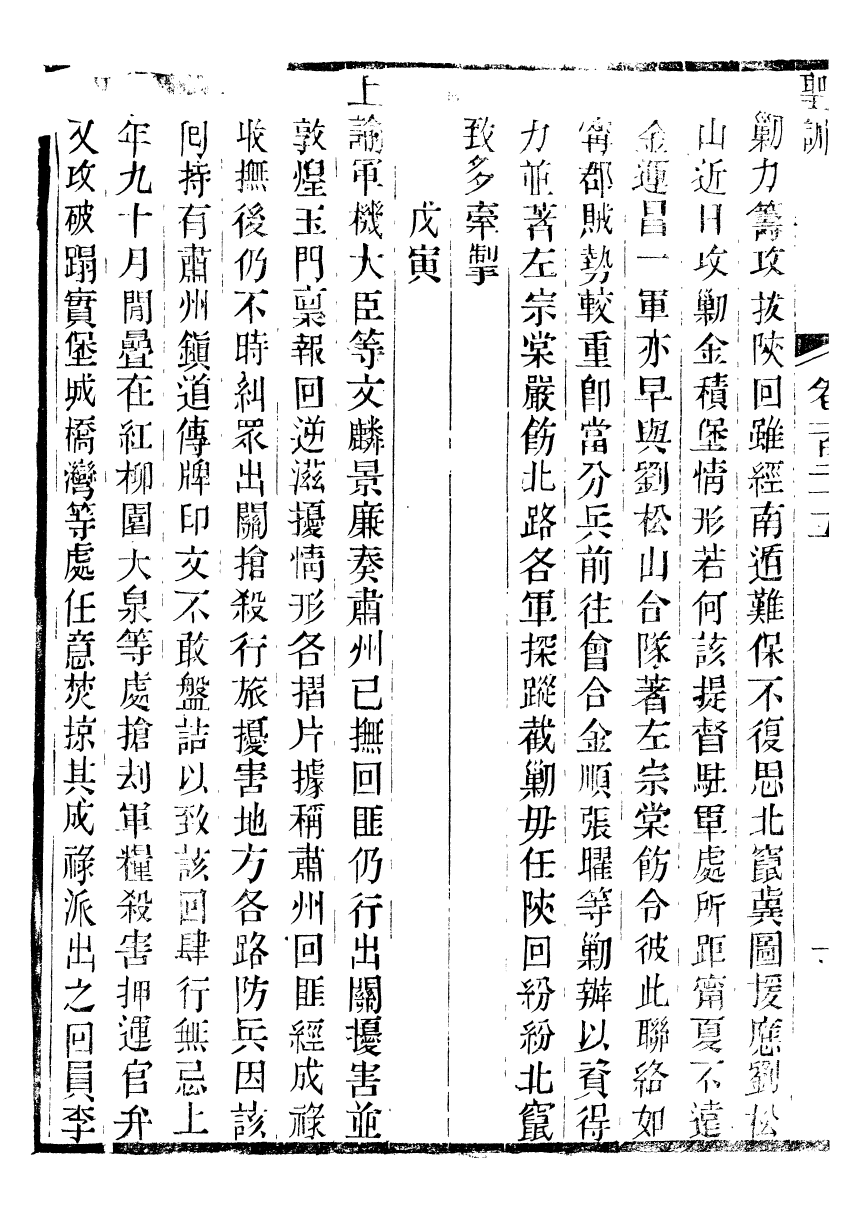 聖訓
卷一百二十五
一
勦力籌攻拔陝回雖經南遁難保不復思北竄冀圖援應劉松
山近日攻勦金積堡情形若何該提督駐軍處所距甯夏不遠
金運昌一軍亦早與劉松山合隊著左宗棠飭令彼此聯絡如
甯郡賊勢較重卽當分兵前往會合金順張曜等勦辦以資得
力並著左宗棠嚴飭北路各軍探蹤截勦毋任陝回紛紛北竄
致多牽掣
戊寅
上諭軍機大臣等文麟景廉奏肅州已撫回匪仍行出關擾害並
敦煌玉門稟報回逆滋擾情形各摺片據稱肅州回匪經成祿
收撫後仍不時糾眾出關搶殺行旅擾害地方各路防兵因該
回持有肅州鎭道傳牌印文不敢盤詰以致該回肆行無忌上
年九十月閒疊在紅柳園大泉等處搶刦軍糧殺害押運官弁
又攻破蹋實堡城橋灣等處任意焚掠其成祿派出之回員李